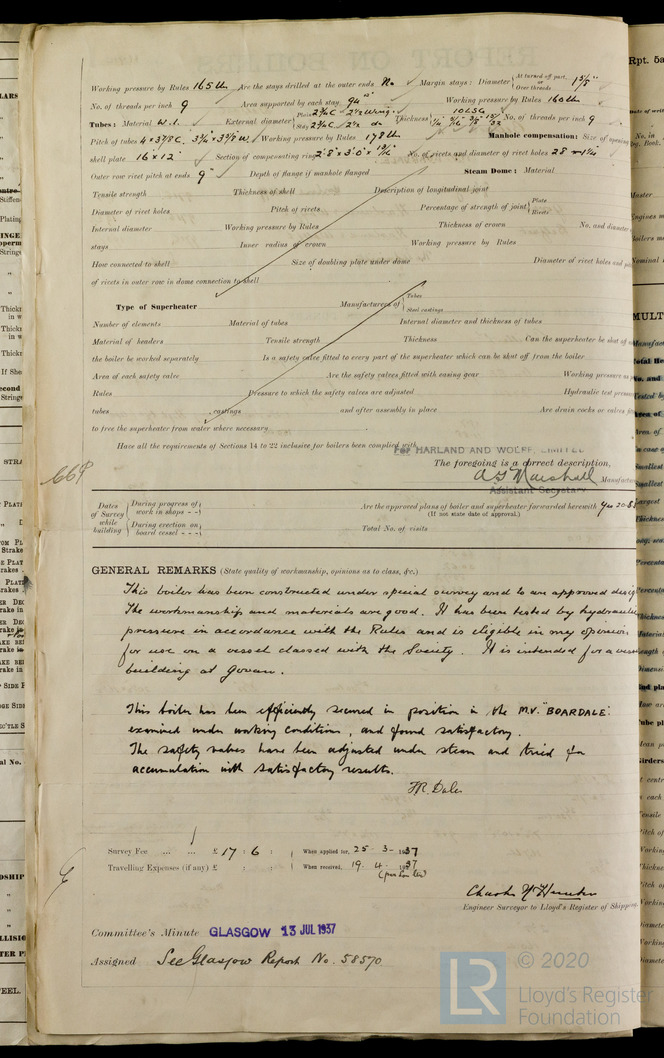 Working pressure by Rules 165 lb Are the stays drilled at the outer ends No Margin stays: Diameter { At turned off part, or Over threads 1 5/8"
No. of threads per inch 9 Area supported by each stay 94 □" Working pressure by Rules 160 lb
Tubes: Material W.I. External diameter { Plain 2¾ C 2½ Wing Stay 2¾ C 2½ do Thickness { 10 LSG No. of threads per inch 9
Pitch of tubes 4 x 3 7/8 C. 3¾ x 3 3/8 W. Working pressure by Rules 178 lb Manhole compensation: Size of opening
shell plate 16 x 12" Section of compensating ring 2'8" x 3'0" x No. of rivets and diameter of rivet holes 28
Outer row rivet pitch at ends 9" Depth of flange if manhole flanged Steam Dome: Material
Tensile strength Thickness of shell Description of longitudinal joint
Diameter of rivet holes Pitch of rivets Percentage of strength of joint { Plate Rivets
Internal diameter Working pressure by Rules Thickness of crown No. and diameter
stays Inner radius of crown Working pressure by Rules
How connected to shell Size of doubling plate under dome Diameter of rivet holes and
of rivets in outer row in dome connection to shell
Type of Superheater Manufacturers of { Tubes Steel castings
Number of elements Material of tubes Internal diameter and thickness of tubes
Material of headers Tensile strength Thickness Can the superheater be shut off
the boiler be worked separately Is a safety valve fitted to every part of the superheater which can be shut off from the boiler
Area of each safety valve Are the safety valves fitted with easing gear Working pressure as
Rules Pressure to which the safety valves are adjusted Hydraulic test pressure
tubes , castings and after assembly in place Are drain cocks or valves
to free the superheater from water where necessary
Have all the requirements of Sections 14 to 22 inclusive for boilers been complied with
For HARLAND AND WOLFF, LIMITED
The foregoing is a correct description,
Marshall Manufacturer
Assistant Secretary
669
Dates of Survey while building { During progress of work in shops - - } Are the approved plans of boiler and superheater forwarded herewith Yes
(If not state date of approval.)
{ During erection on board vessel - - - } Total No. of visits
GENERAL REMARKS (State quality of workmanship, opinions as to class, &c.)
This boiler has been constructed under special survey and to an approved
The workmanship and materials are good. It has been tested by hydraulic
pressure in accordance with the Rules and is eligible in my opinion
for use on a vessel classed with the Society. It is intended for a
building at Govan.
This boiler has been efficiently secured in position in the M.V. "BOARDALE"
examined under working conditions, and found satisfactory.
The safety valves have been adjusted under steam and tried for
accumulation with satisfactory results.
Dale
Survey Fee ... ... £ 17 : 6 : } When applied for, 25 - 3 - 1937
Travelling Expenses (if any) £ : : } When received, 19. 4. 1937
Engineer Surveyor to Lloyd's Register of Shipping
Committee's Minute GLASGOW 13 JUL 1937
Assigned See Glasgow Report No. 58570
LR © 2020
Lloyd's Register
Foundation
Rpt. 5a